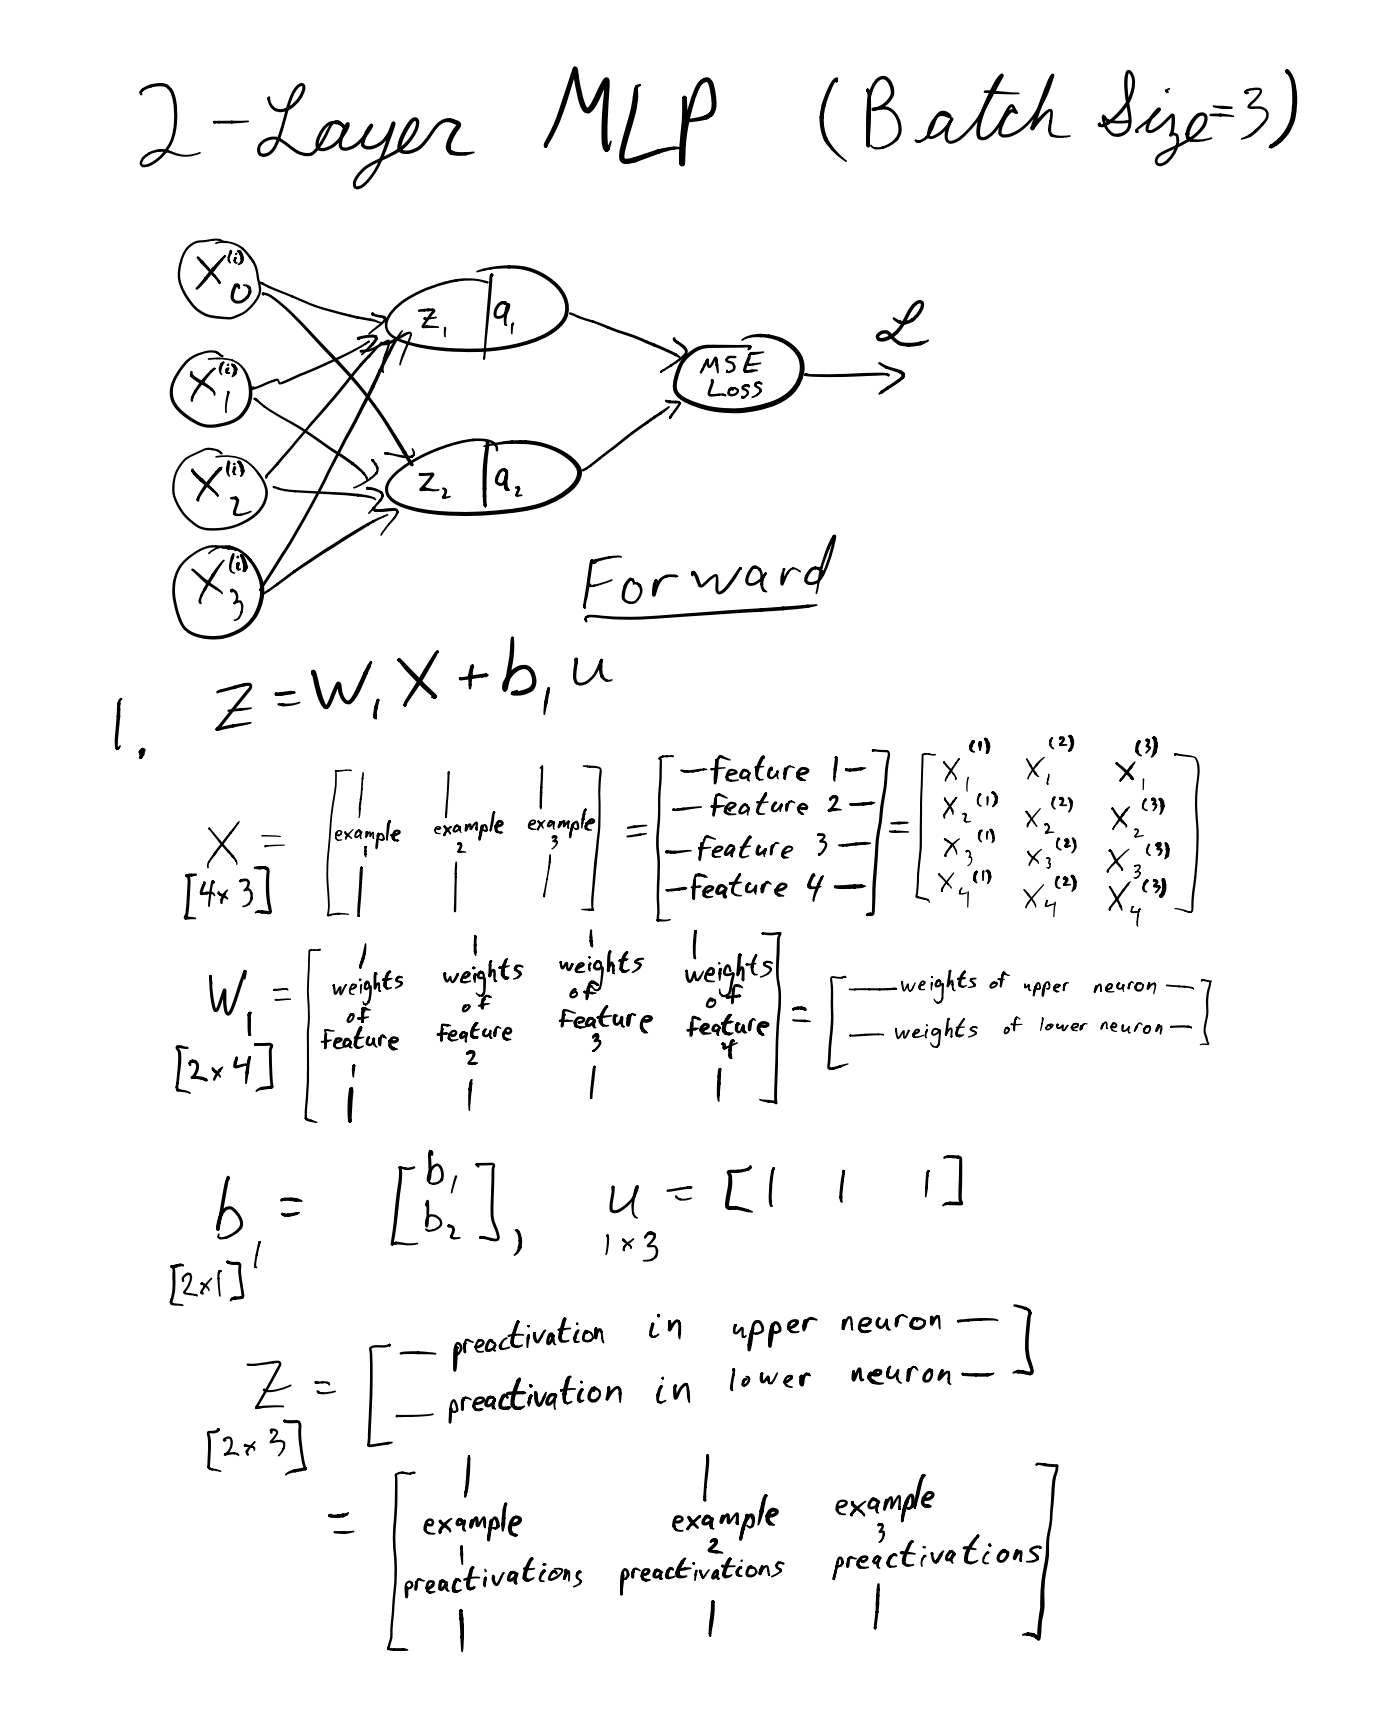 2-Layer MLP (Batch Size=3)
X₀⁽ⁱ⁾
z₁ | a₁
ℒ
X₁⁽ⁱ⁾
MSE
Loss
X₂⁽ⁱ⁾
z₂ | a₂
X₃⁽ⁱ⁾
Forward
1. Z = W₁X + b₁u
X = [example 1 example 2 example 3] = [—feature 1— —feature 2— —feature 3— —feature 4—] = [X₁⁽¹⁾ X₁⁽²⁾ X₁⁽³⁾
X₂⁽¹⁾ X₂⁽²⁾ X₂⁽³⁾
X₃⁽¹⁾ X₃⁽²⁾ X₃⁽³⁾
X₄⁽¹⁾ X₄⁽²⁾ X₄⁽³⁾]
[4×3]
W₁ = [weights of feature 1 weights of feature 2 weights of feature 3 weights of feature 4] = [—weights of upper neuron—
—weights of lower neuron—]
[2×4]
b₁ = [b₁ b₂], u = [1 1 1]
[2×1] 1×3
Z = [— preactivation in upper neuron —
— preactivation in lower neuron —]
[2×3]
= [example 1 preactivations example 2 preactivations example 3 preactivations]